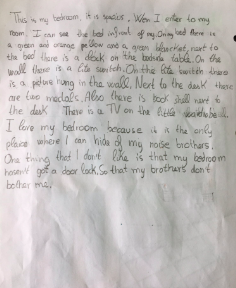 This is my bedroom, it is spacios. Wen I enter to my
room I can see the bed infront of my. On my bed there is
a green and orange pellow and a green blanket, next to
the bed there is a clock on the bedside table. On the
wall there is a lite switch. On the lite switch there
is a picture hung in the wall. Next to the desk there
are two medals. Also there is book shelf next to
the desk There is a TV on the little
I love my bedroom because it is the only
place where I can hide of my noise brothers.
One thing that I don't like is that my bedroom
hasen't got a door lock. So that my brothers don't
bother me.